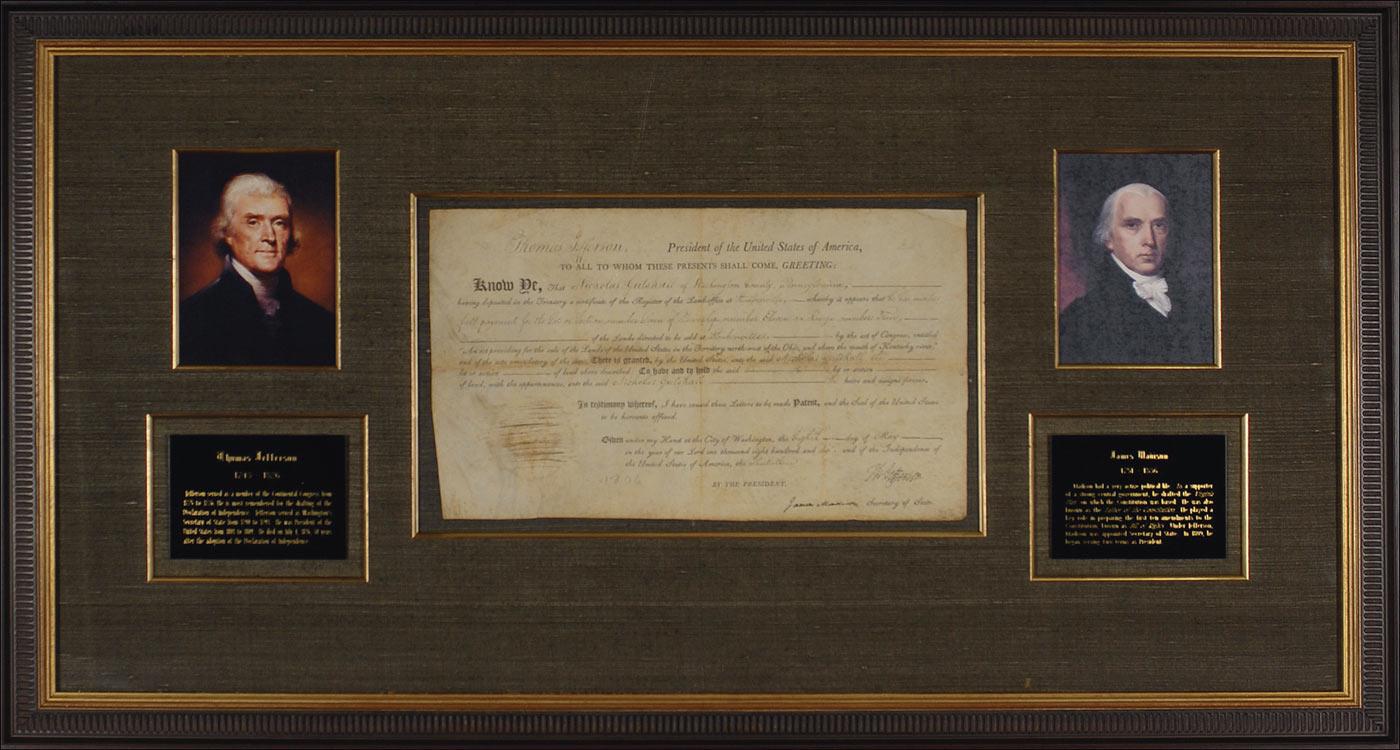 Thomas Jefferson, President of the United States of America,
TO ALL TO WHOM THESE PRESENTS SHALL COME, GREETING:
Know Ye, That Nicholas of Washington County, Pennsylvania,
having deposited in the Treasury a certificate of the Register of the Land-office at whereby it appears that he has made
full payment for the Lot or Section number of Township number Eleven in Range number
of the Lands directed to be sold at by the act of Congress, entitled
"An act providing for the sale of the Lands of the United States in the Territory north-west of the Ohio, and above the mouth of Kentucky river,"
and of the acts amendatory of the same, There is granted, by the United States, unto the said Nicholas the
lot or section of land above described. To have and to hold the said lot or section
of land, with the appurtenances, unto the said Nicholas his heirs and assigns forever.
In testimony whereof, I have caused these Letters to be made Patent, and the Seal of the United States
to be hereunto affixed.
Given under my Hand at the City of Washington, the Eighth day of May
in the year of our Lord one thousand eight hundred and and of the Independence of
the United States of America, the
BY THE PRESIDENT,
James Madison Secretary of State
Thomas Jefferson
1743 - 1826
Jefferson served as a member of the Continental Congress from
1775 to 1776. He is most remembered for the drafting of the
Declaration of Independence. Jefferson served as Washington's
Secretary of State from 1790 to 1793. He was President of the
United States from 1801 to 1809. He died on July 4, 1826, 50 years
after the adoption of the Declaration of Independence.
James Madison
1751 - 1836
Madison had a very active political life. As a supporter
of a strong central government, he drafted the Virginia
Plan on which the Constitution was based. He was also
known as the Father of the Constitution. He played a
key role in preparing the first ten amendments to the
Constitution, known as Bill of Rights. Under Jefferson,
Madison was appointed Secretary of State. In 1809, he
began serving two terms as President.